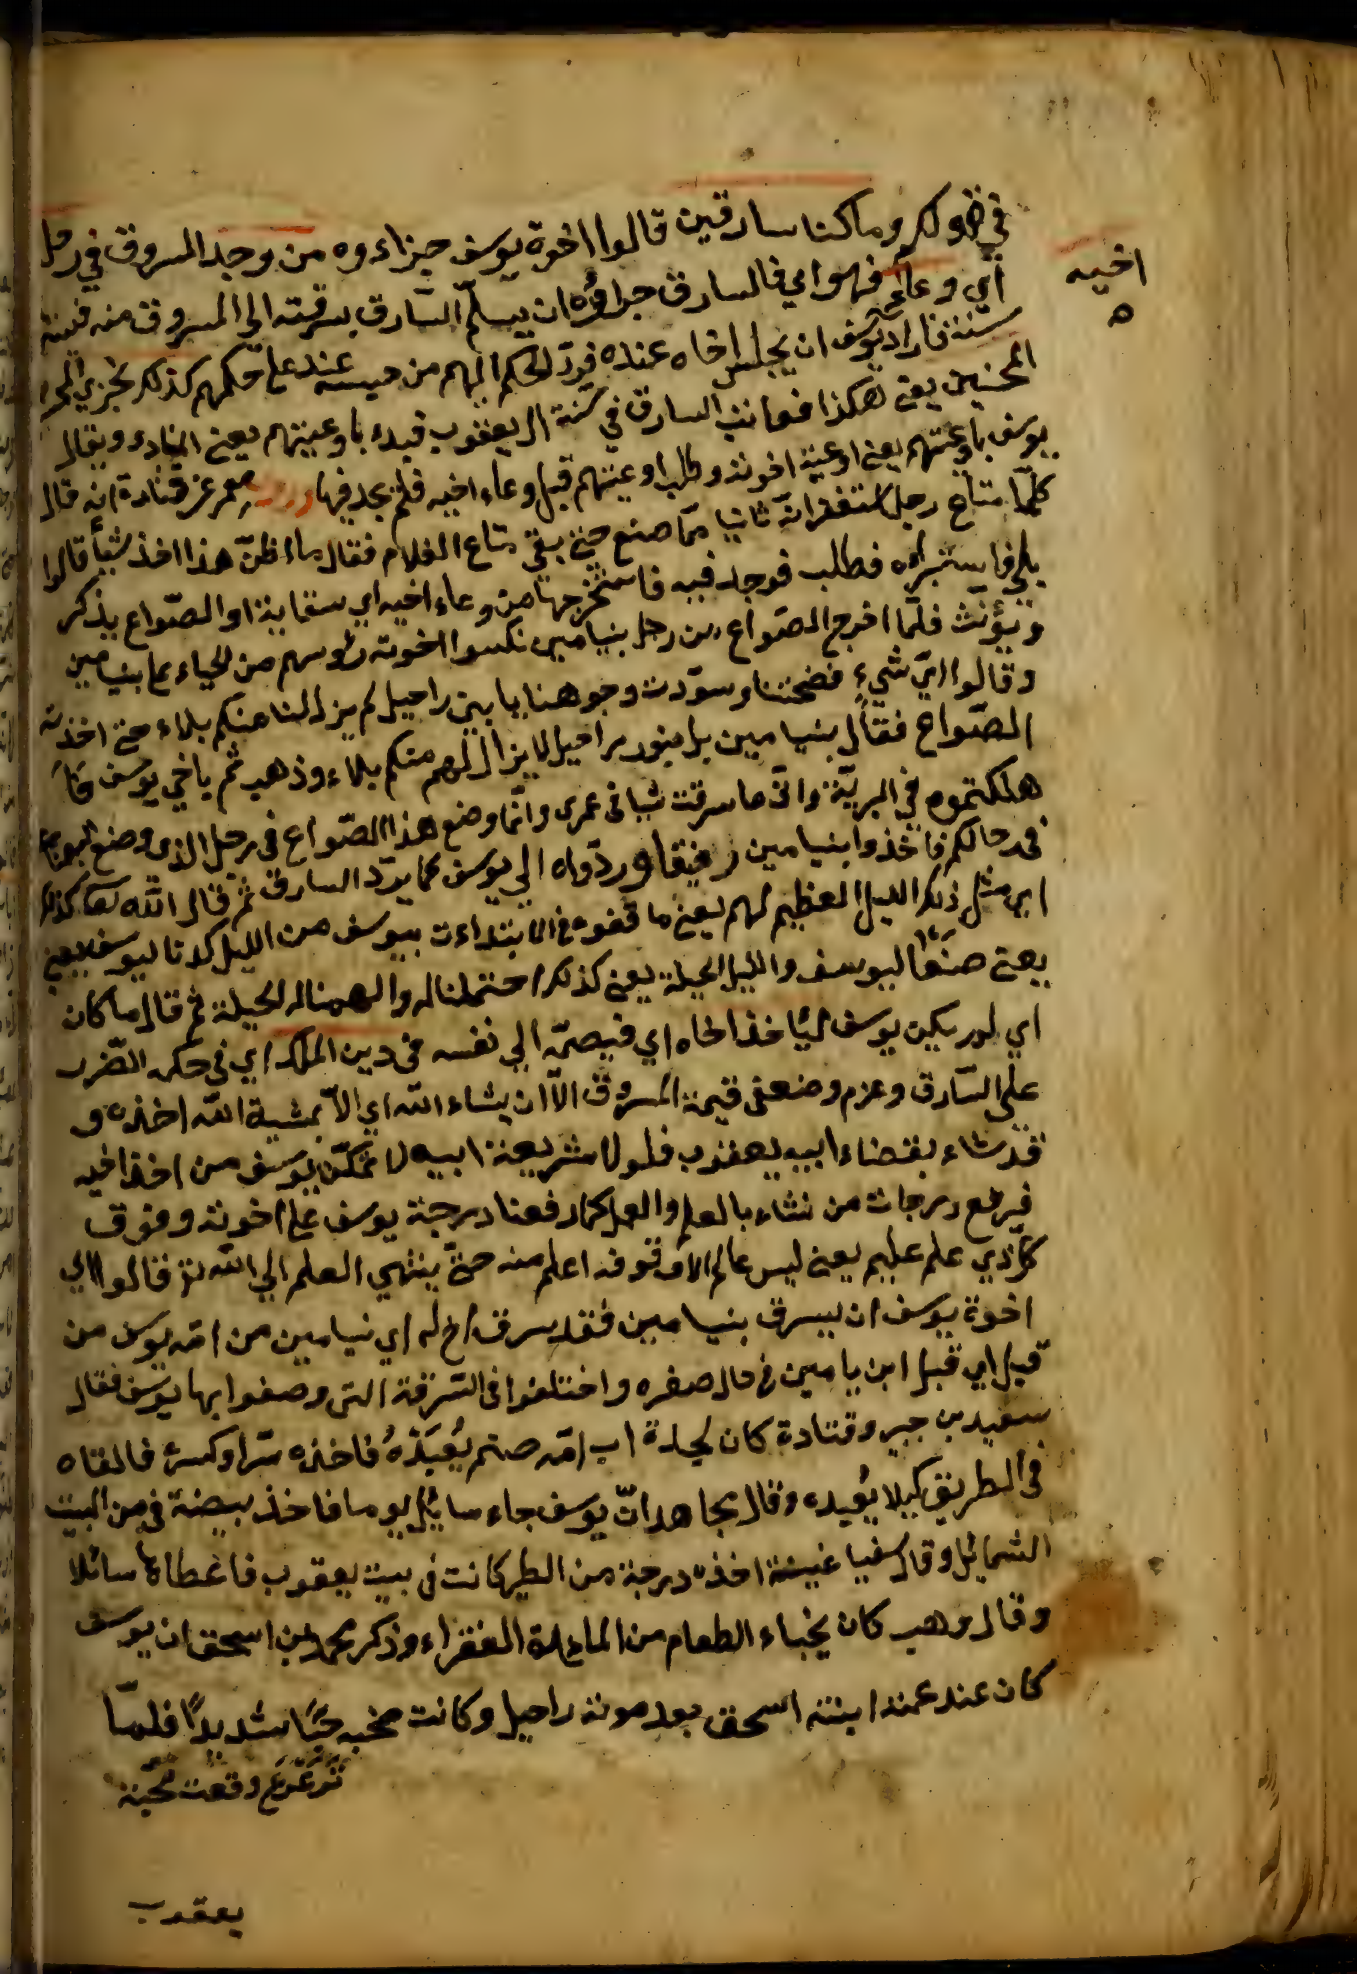 في قولكم وما كنا سارقين قالوا اخوة يوسف جزاءوه من وجد المسروق في رحل
اخيه
اي وعائه فهو اي فالسارق جزاؤه ان يسلّم السّارق بسرقته الي المسروق منه
سنة فاراد يوسف ان يحبس اخاه عنده فردّ الحكم اليهم من حبسه عنده علي حكمهم كذلك نجزي
المحسنين يعني هكذا نعاقب السارق في سنّة ال يعقوب فبدء باوعيتهم يعني المنادي ويقال
يوسف باوعيتهم يعني اوعية اخوته وطلب اوعيتهم قبل وعاء اخيه فلم يجد فيها معمر عن قتادة انه قال
كلّما متاع رجل استغفر الله تائبا ممّا صنع حتي بقي متاع الغلام فقال ما اظنّ هذا اخذ شيأ قالوا
بلي فاستبرأه فطلب فوجد فيه فاستخرجها من وعاء اخيه اي سقاية او الصّواع يذكر
ويؤنّث فلمّا اخرج الصّواع من رحل بنيامين نكسوا اخوته رؤسهم من الحياء بنيامين
وقالوا ايّ شيء فضحتنا وسوّدت وجوهنا يا بني راحيل لم يزل لنا منكم بلاء متي اخذت
الصّواع فقال بنيامين بل بنو راحيل لا يزال لهم منكم بلاء وذهبتم باخي يوسف
هلكتموه في البريّة وانّي ما سرقت شيأ في عمري وانّما وضع هذا الصّواع في رحل الذي وضع
في رحالكم فاخذوا بنيامين رفيقا وردّواه الي يوسف كما يردّ السارق ثم قال الله كذلك
اي مثل ذلك الليل العظيم لهم يعني ما في الابتداءت بيوسف من الليل كدنا ليوسف يعني
يعني صنعا ليوسف والليل الحيلة يعني كذلك احتملنا له والهمناله الحيلة ثم قال ما كان
اي لم يكن يوسف ليأخذ اخاه اي فيضمّه الي نفسه في دين الملك اي في حكمه الضّرب
علي السّارق وغرم وضعفي قيمة المسروق الاّ ان يشاء الله اي الاّ بمشية الله اخذه و
قد شاء بقضاء ابيه يعقوب فلولا شريعة ابيه لا تمكّن يوسف من اخذ اخيه
فيرفع درجات من نشاء بالعلم والعمل كما رفعنا درجة يوسف علي اخوته وفوق
كلّ ذي علم عليم يعني ليس عالم الاّ فوقه اعلم منه حتّي ينتهي العلم الي الله قالوا اي
اخوة يوسف ان يسرق بنيامين فقد سرق اخ له اي نيامين من امّه يوسف من
قبل اي قبل ابن يامين في حال صغره واختلفوا في السّرقة التي وصفوا بها يوسف فقال
سعيد بن جبير وقتادة كان لجدة اب امّه صنم يُعبَدُهُ فاخذه سرّا وكسره فالقاه
في الطريق كيلا يعبده وقال مجاهد انّ يوسف جاء سائل يوما فاخذ بيضة من البيت
السّائل وقال سفيا عيينة اخذه درجة من الطير كانت في بيت يعقوب فاعطاها سائلا
وقال وهب كان يخباء الطعام من المائدة الفقراء وذكر محمد بن اسحق ان يوسف
كان عند عمته ابنته اسحق بعد موته راحيل وكانت محبه حبّا شديدًا فلمّا
تَرعْرَع وقعت محبّة
يعقوب